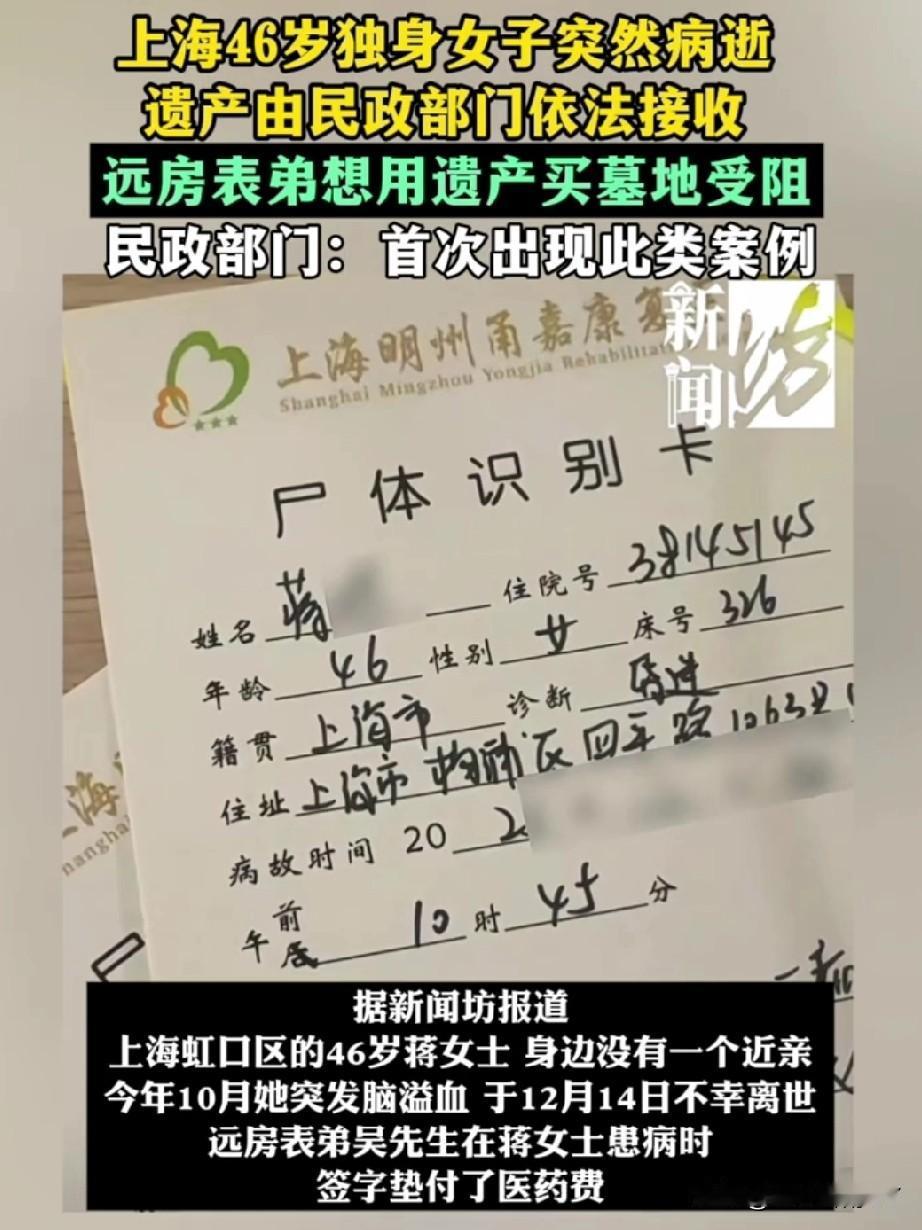 上海46岁独身女子突然病逝
遗产由民政部门依法接收
远房表弟想用遗产买墓地受阻
民政部门：首次出现此类案例
新闻坊
上海明州甬嘉康复
Shanghai Mingzhou Yongjia Rehabilitat
尸体识别卡
姓名 蒋 住院号 38145145
年龄 46 性别 女 床号 326
籍贯 上海市 诊断 昏迷
住址 上海市 区四平路1063号
病故时间 20 2
午前后 10 时 45 分
上海
Shanghai
据新闻坊报道
上海虹口区的46岁蒋女士 身边没有一个近亲
今年10月她突发脑溢血 于12月14日不幸离世
远房表弟吴先生在蒋女士患病时
签字垫付了医药费